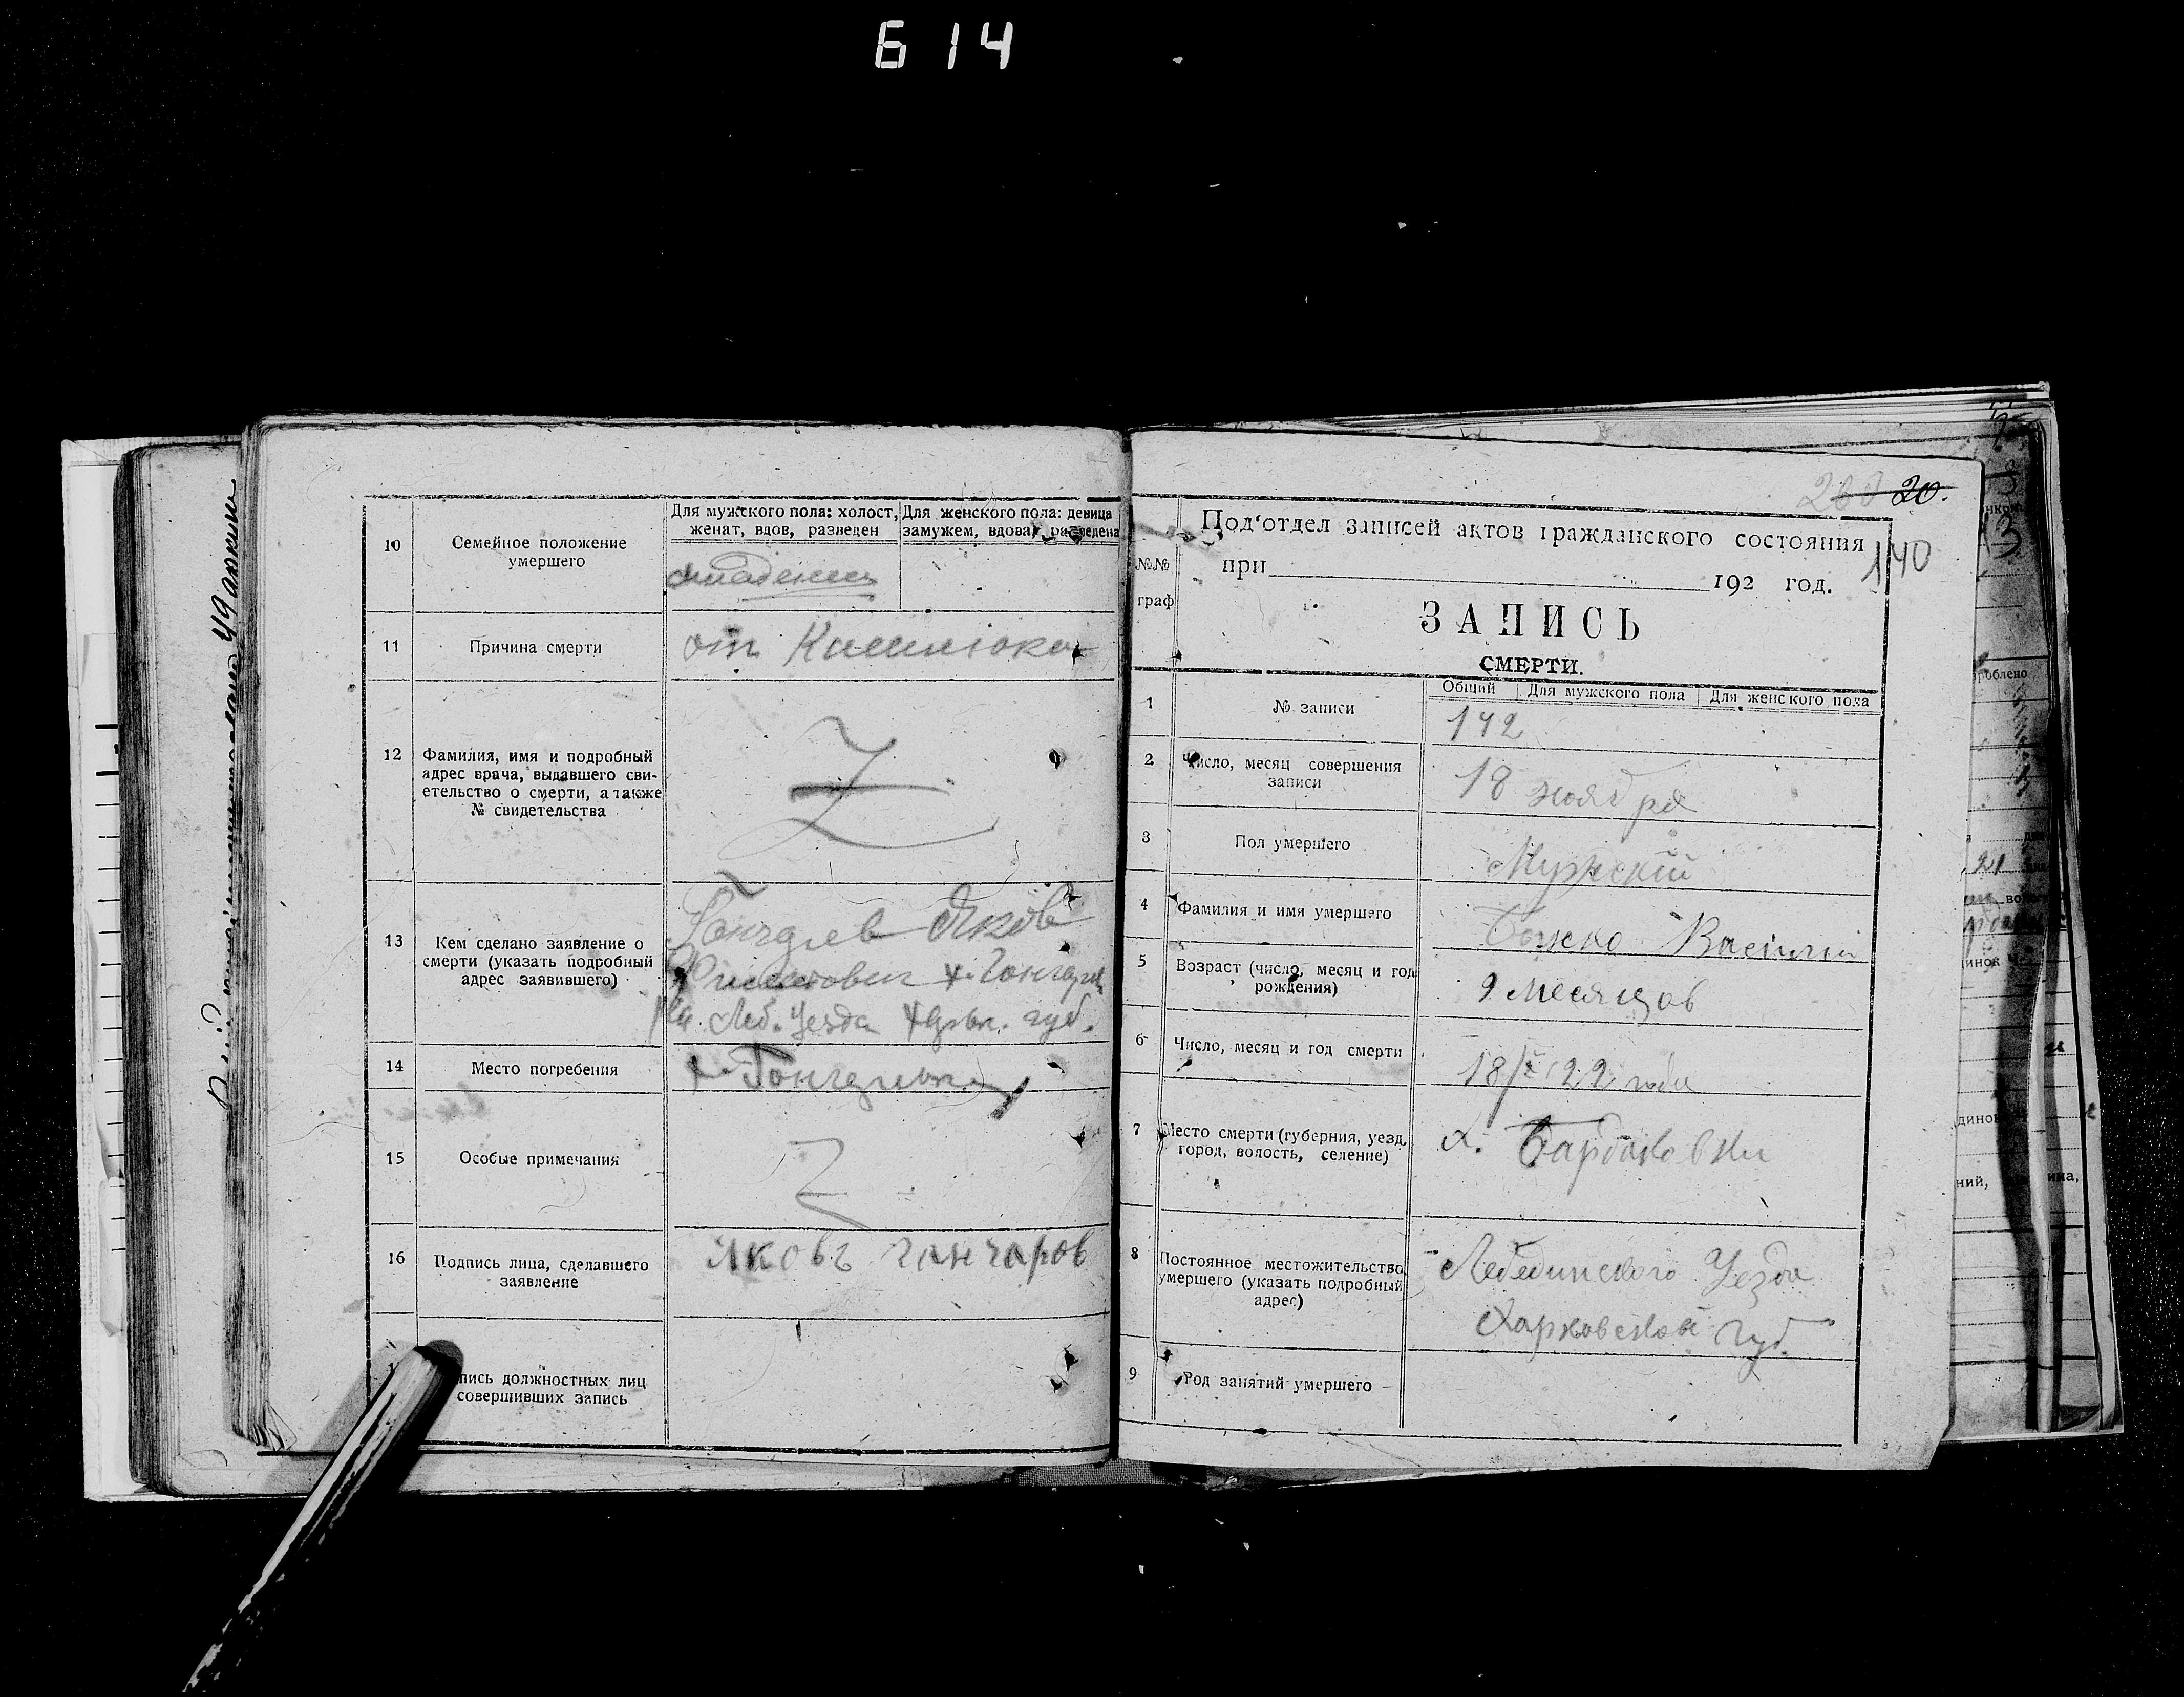 614
10
Семейное положение
умершего
Для мужского пола: холост,
женат, вдов, разведен
Для женского пола: девица
замужем, вдова, разведена
младенец
11
Причина смерти
от Кашлюка
12
Фамилия, имя и подробный
адрес врача, выдавшего сви-
етельство о смерти, а также
№ свидетельства
Z
13
Кем сделано заявление о
смерти (указать подробный
адрес заявившего)
Яков
Леб. Уезда Харьк. губ.
14
Место погребения
15
Особые примечания
Z
16
Подпись лица, сделавшего
заявление
Яковъ ганчаров
пись должностных лиц
совершивших запись
20.
140
Под'отдел записей актов гражданского состояния
при 192 год.
№№
граф
ЗАПИСЬ
СМЕРТИ.
Общий
Для мужского пола
Для женского пола
1
№ записи
142
2
Число, месяц совершения
записи
18 ноября
3
Пол умершего
Мужский
4
Фамилия и имя умершего
Божко Василий
5
Возраст (число, месяц и год
рождения)
9 месяцов
6
Число, месяц и год смерти
18/X 22 года
7
Место смерти (губерния, уезд,
город, волость, селение)
х.
8
Постоянное местожительство
умершего (указать подробный
адрес)
Лебединского Уезда
Харковской Губ.
9
Род занятий умершего